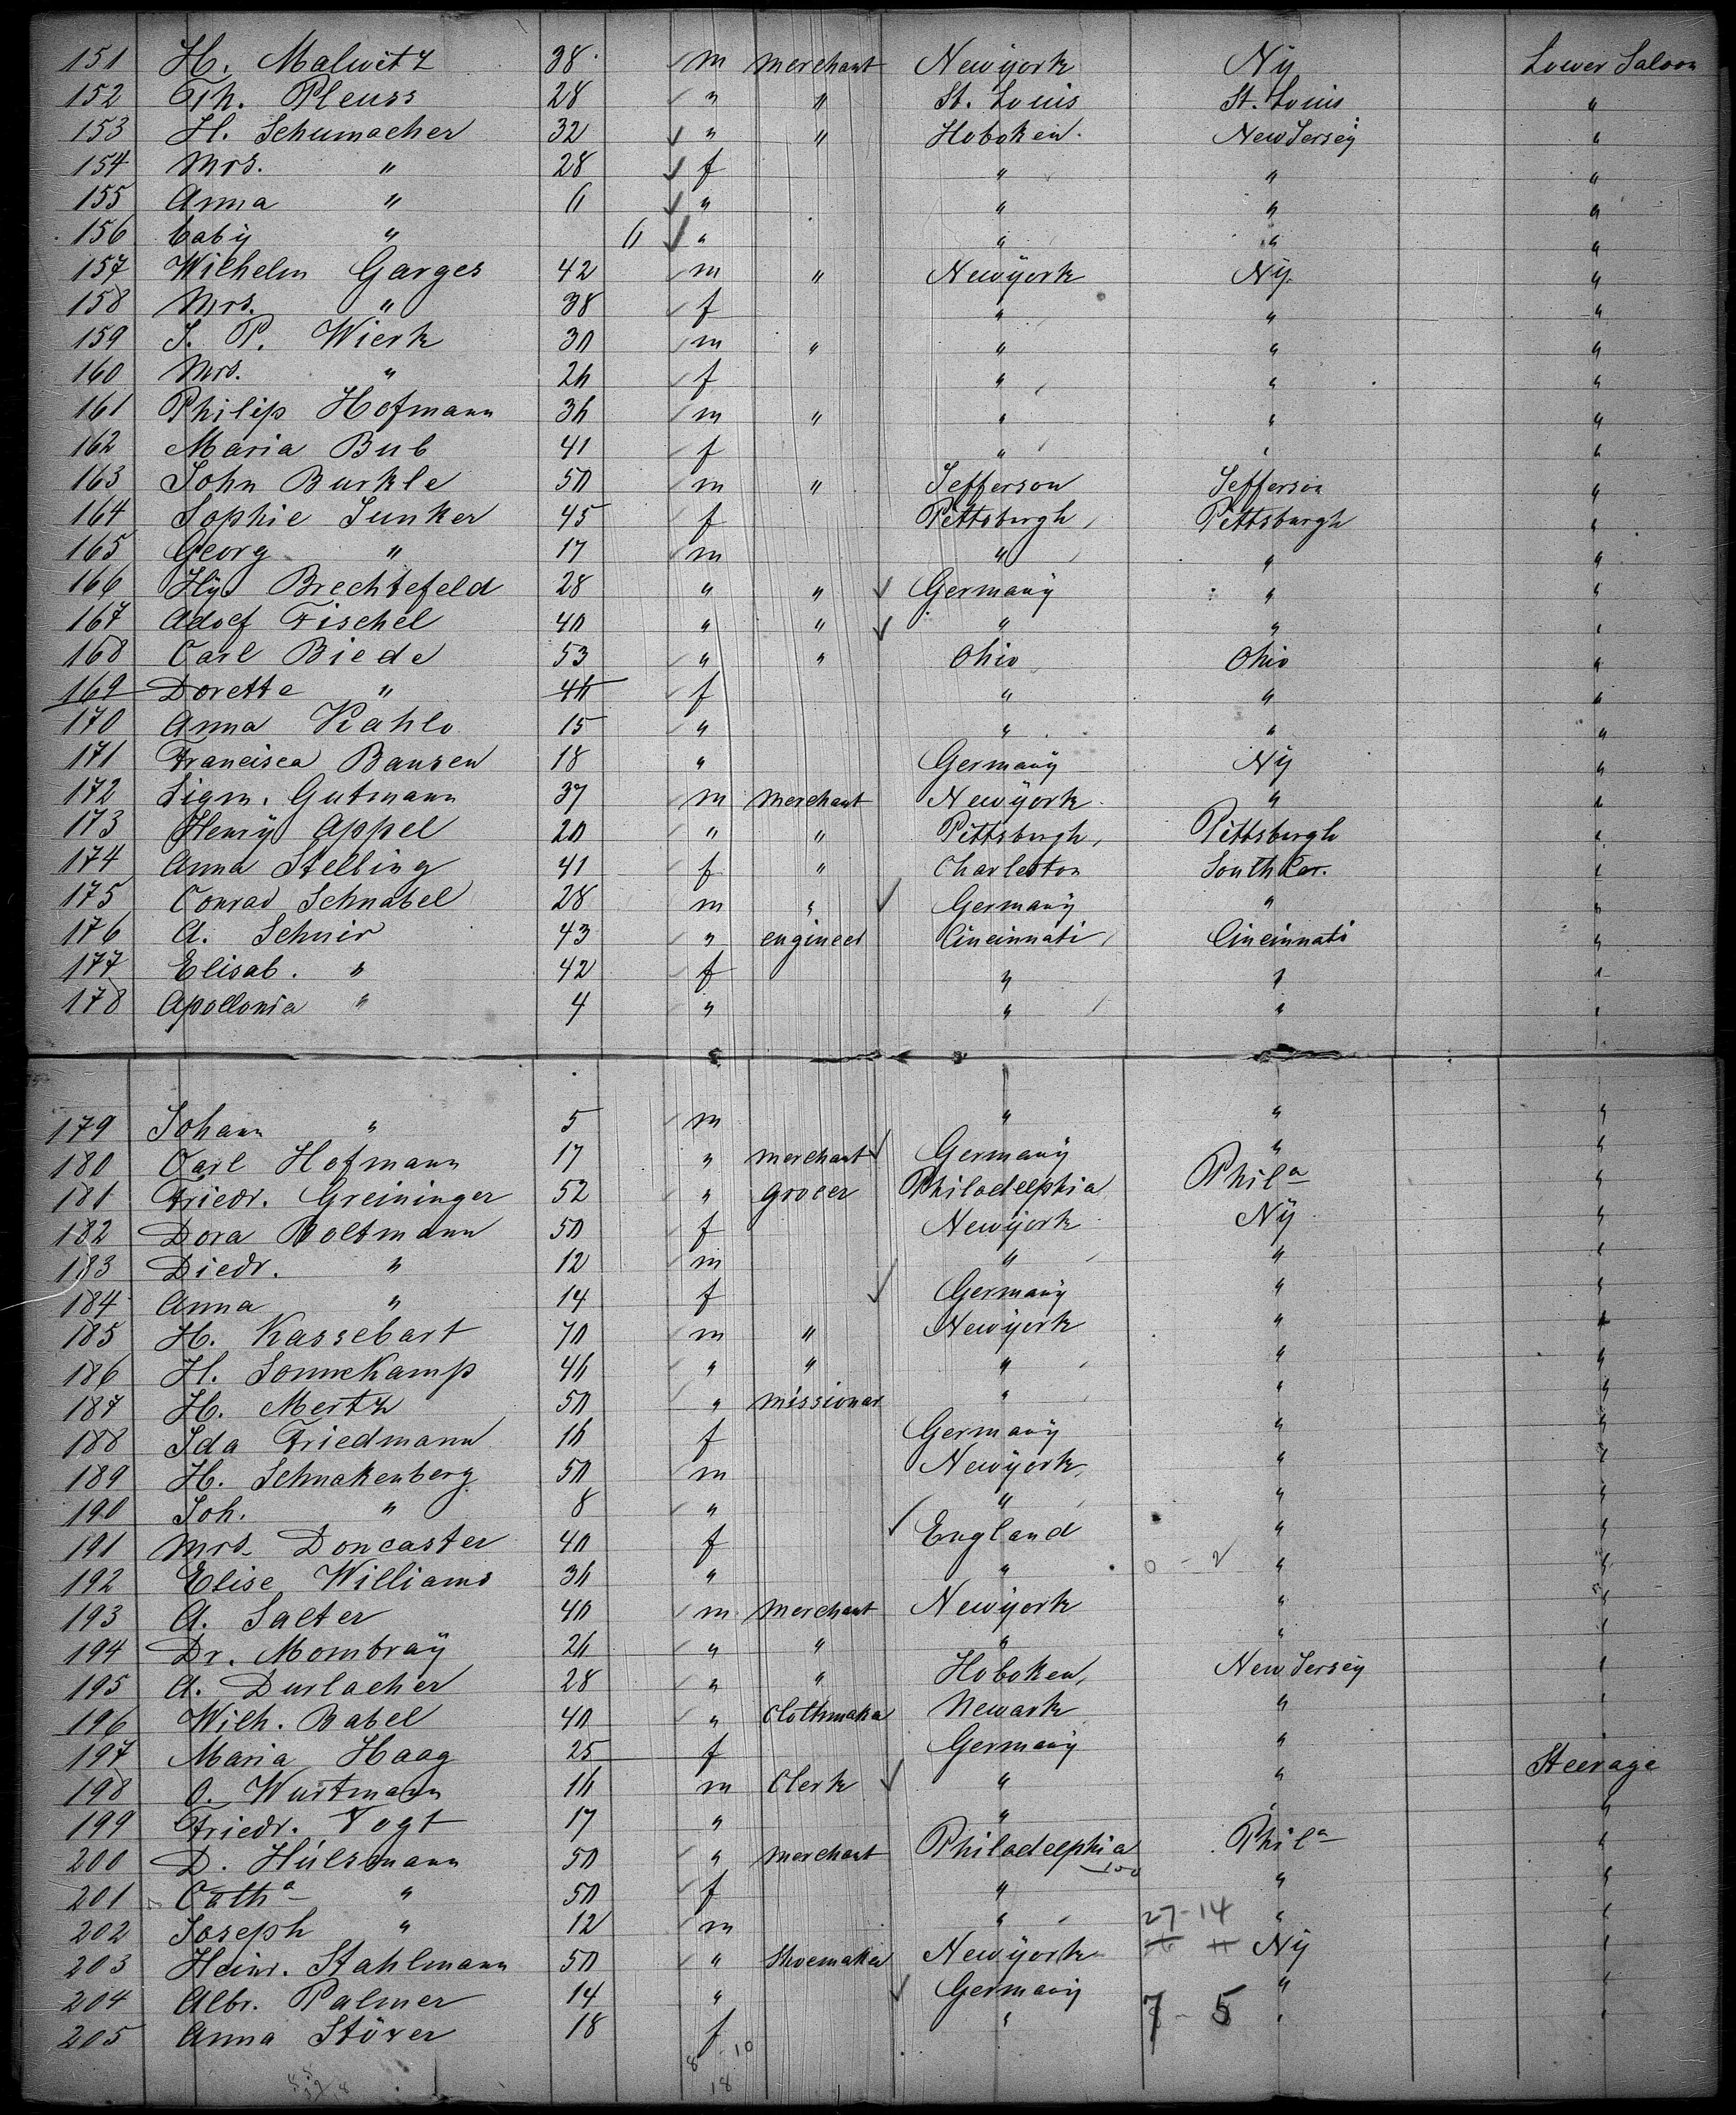 151 H. Malwitz 38 m merchant Newyork Ny Lower Saloon
152 Th. Pleuss 28 " " St. Louis St. Louis "
153 H. Schumacher 32 " " Hoboken New Jersey "
154 Mrs. " 28 f " " "
155 Anna " 6 " " " "
156 baby " 6 " " " "
157 Wilhelm Garges 42 m " Newyork Ny "
158 Mrs. " 38 f " " "
159 J. P. Wierk 30 m " " " "
160 Mrs. " 26 f " " "
161 Philip Hofmann 36 m " " " "
162 Maria Bub 41 f " " "
163 John Burkle 50 m " Jefferson Jefferson "
164 Sophie Junker 45 f Pittsburgh Pittsburgh "
165 Georg " 17 m " " "
166 Hy. Brechtefeld 28 " " Germany " "
167 Adolf Fischel 40 " " " " "
168 Carl Biede 53 " " Ohio Ohio "
169 Dorette " 46 f " " "
170 Anna Kahlo 15 " " " "
171 Francisca Bansen 18 " Germany Ny "
172 Sigm. Gutmann 37 m merchant Newyork " "
173 Henry Appel 20 " " Pittsburgh, Pittsburgh "
174 Anna Stelling 41 f " Charleston South Car. "
175 Conrad Schnabel 28 m " Germany " "
176 A. Schnir 43 " engineer Cincinnati Cincinnati "
177 Elisab. " 42 f " " "
178 Apollonia " 4 " " " "
179 Johann " 5 m " " "
180 Carl Hofmann 17 " merchant Germany " "
181 Friedr. Greininger 52 " grocer Philadelphia Phila "
182 Dora Boltmann 50 f Newyork Ny "
183 Diedr. " 12 m " " "
184 Anna " 14 f Germany " "
185 H. Kassebart 70 m " Newyork " "
186 H. Sonnekamp 46 " " " " "
187 H. Mertz 50 " missionar " " "
188 Ida Friedmann 16 f Germany " "
189 H. Schnakenberg 50 m Newyork " "
190 Joh. " 8 " " " "
191 Mrs. Doncaster 40 f England " "
192 Elise Williams 36 " " " "
193 A. Salter 40 m merchant Newyork " "
194 Dr. Mombray 26 " " " " "
195 A. Durlacher 28 " " Hoboken, New Jersey "
196 Wilh. Babel 40 " Clothmaker Newark " "
197 Maria Haag 25 f Germany "
198 O. Wurtmann 16 m Clerk " " Steerage
199 Friedr. Vogt 17 " " " "
200 D. Hülsmann 50 " merchant Philadelphia Phila "
201 Catha " 50 f " " "
202 Joseph " 12 m " 27-14 " "
203 Heinr. Stahlmann 50 " Shoemaker Newyork Ny "
204 Albr. Palmer 14 " Germany " "
205 Anna Stöver 18 f " 7 - 5 " "
8 10
18